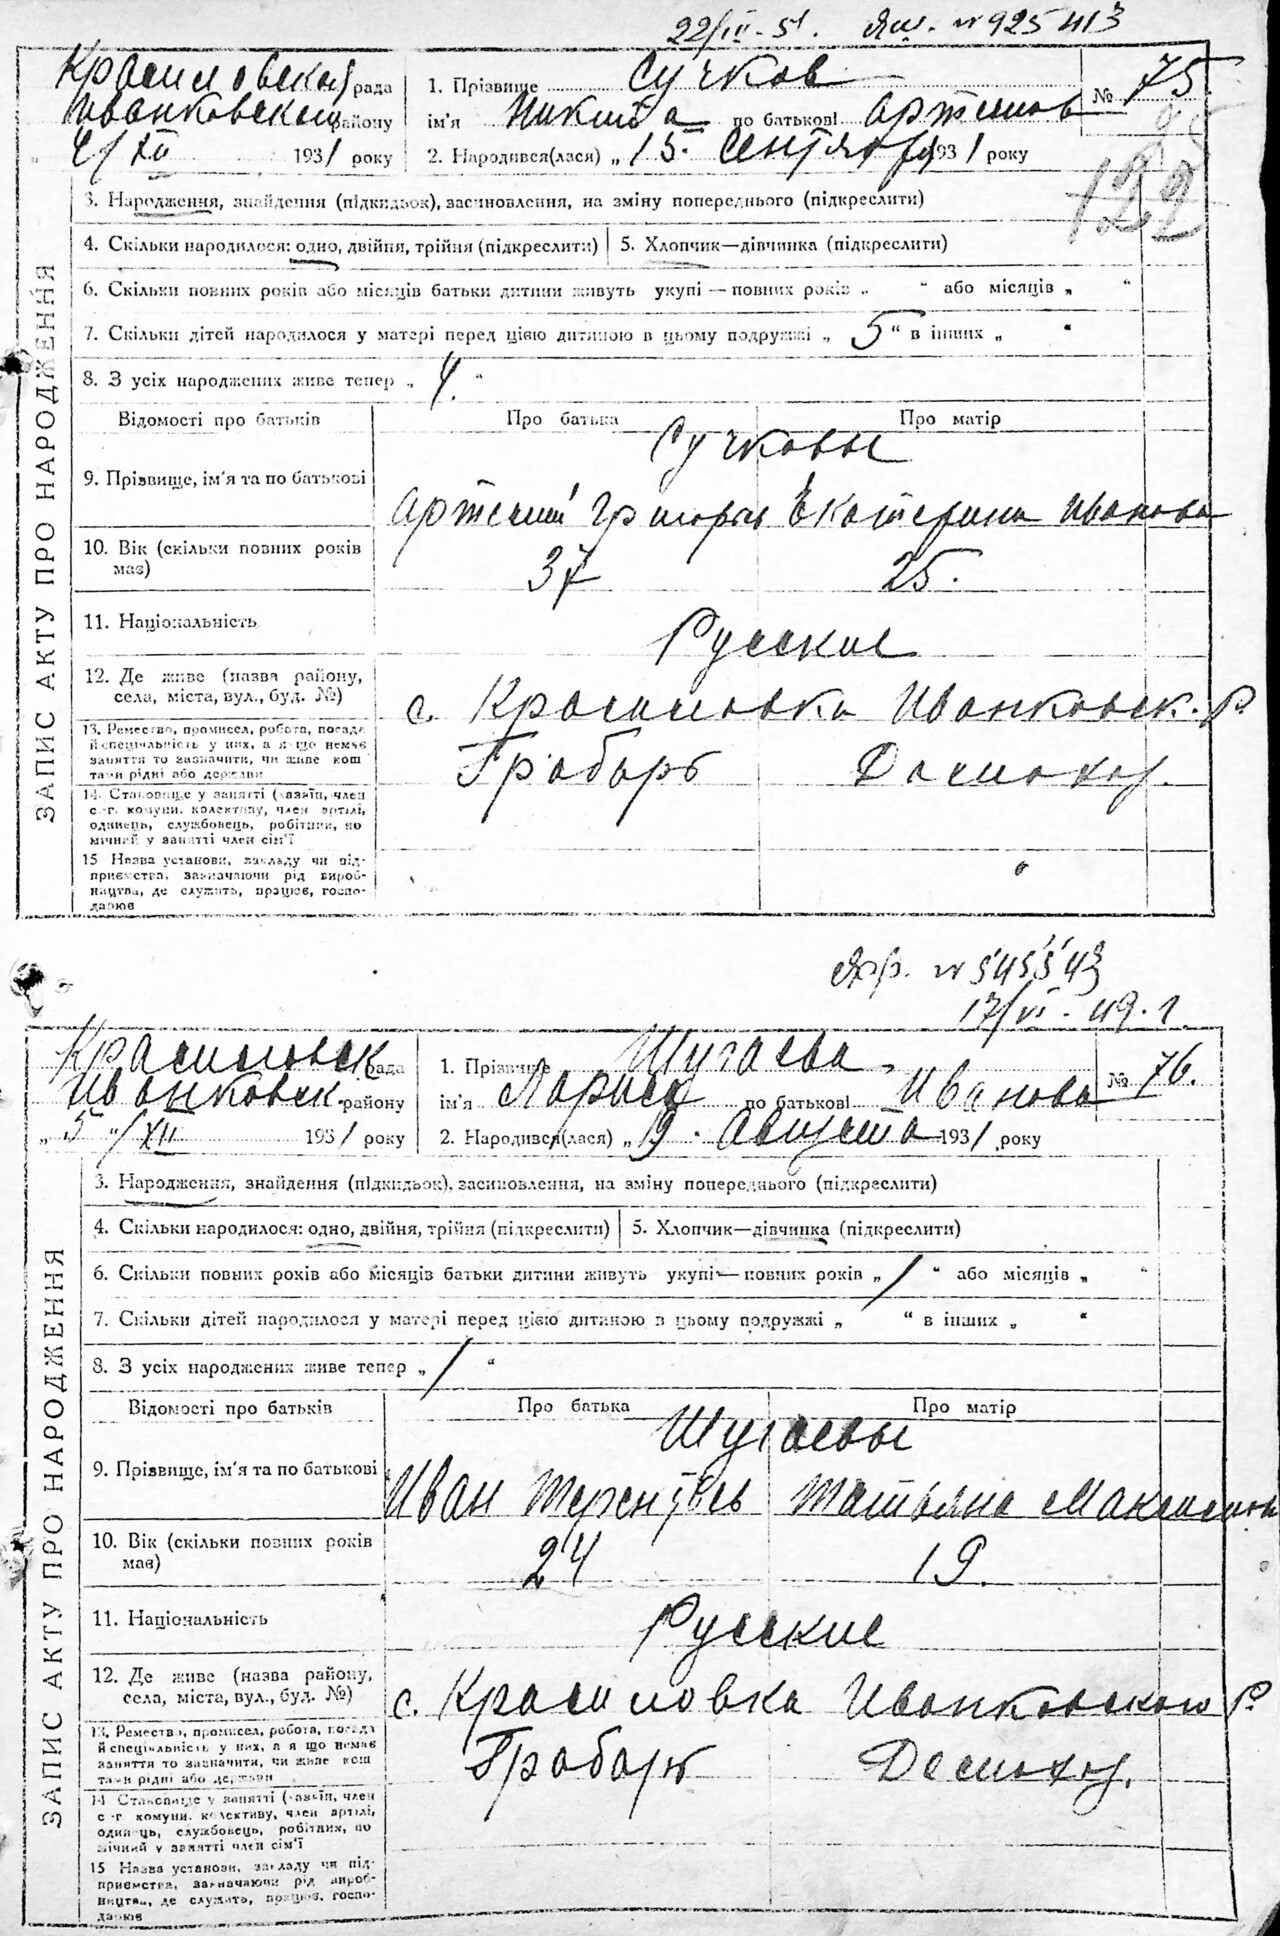 22/III-51. № 925413
Красиловская рада
Иванковский району
4/XII 1931 року
1. Прізвище Сучков
ім'я Никита по батькові Артемов
№ 75.
2. Народився(лася) „ 15. Сентября 1931 року
122
3. Народження, знайдення (підкидьок), засиновлення, на зміну попереднього (підкреслити)
4. Скільки народилося: одно, двійня, трійня (підкреслити) 5. Хлопчик—дівчинка (підкреслити)
6. Скільки повних років або місяців батьки дитини живуть укупі—повних років „ “ або місяців „ “
7. Скільки дітей народилося у матері перед цією дитиною в цьому подружжі „ 5 “ в інших „ “
8. З усіх народжених живе тепер „ 4. “
ЗАПИС АКТУ ПРО НАРОДЖЕННЯ
Відомості про батьків Про батька Про матір
Сучковы
9. Прізвище, ім'я та по батькові
Артемий Григорьев Екатерина Иванова
10. Вік (скільки повних років має) 37 25.
11. Національність Русские
12. Де живе (назва району, села, міста, вул., буд. №)
с. Красиловка Иванковск. р.
13. Ремество, промисел, робота, посада
й спеціяльність у них, а якщо немає
заняття то зазначити, чи живе кош
тами рідні або держави
Грабарь Домохоз.
14. Становище у занятті (хазяїн, член
с.-г. комуни, колективу, член артілі,
одинець, службовець, робітник, по
мічний у занятті член сім'ї
15 Назва установи, закладу чи під-
приємства, зазначаючи рід вироб-
ництва, де служить, працює, госпо-
дарює
№ 545543
17/VI-49.г.
Красиловск рада
Иванковск. району
„ 5 “/XII 1931 року
1. Прізвище Шугаева
ім'я Лариса по батькові Иванова
№ 76.
2. Народився(лася) „ 19. Августа 1931 року
3. Народження, знайдення (підкидьок), засиновлення, на зміну попереднього (підкреслити)
4. Скільки народилося: одно, двійня, трійня (підкреслити) 5. Хлопчик—дівчинка (підкреслити)
6. Скільки повних років або місяців батьки дитини живуть укупі—повних років „ 1 “ або місяців „ “
7. Скільки дітей народилося у матері перед цією дитиною в цьому подружжі „ “ в інших „ “
8. З усіх народжених живе тепер „ 1 “
ЗАПИС АКТУ ПРО НАРОДЖЕННЯ
Відомості про батьків Про батька Про матір
Шугаевы
9. Прізвище, ім'я та по батькові
Иван Терентьев Татьяна Максимов
10. Вік (скільки повних років має) 24 19.
11. Національність Русские
12. Де живе (назва району, села, міста, вул., буд. №)
с. Красиловка Иванковского р.
13. Ремество, промисел, робота, посада
й спеціяльність у них, а якщо немає
заняття то зазначити, чи живе кош
тами рідні або держави
Грабарь Домохоз.
14 Становище у занятті (хазяїн, член
с.-г комуни, колективу, член артілі,
одинець, службовець, робітник, по
мічний у занятті член сім'ї
15 Назва установи, закладу чи під-
приємства, зазначаючи рід вироб-
ництва, де служить, працює, госпо-
дарює